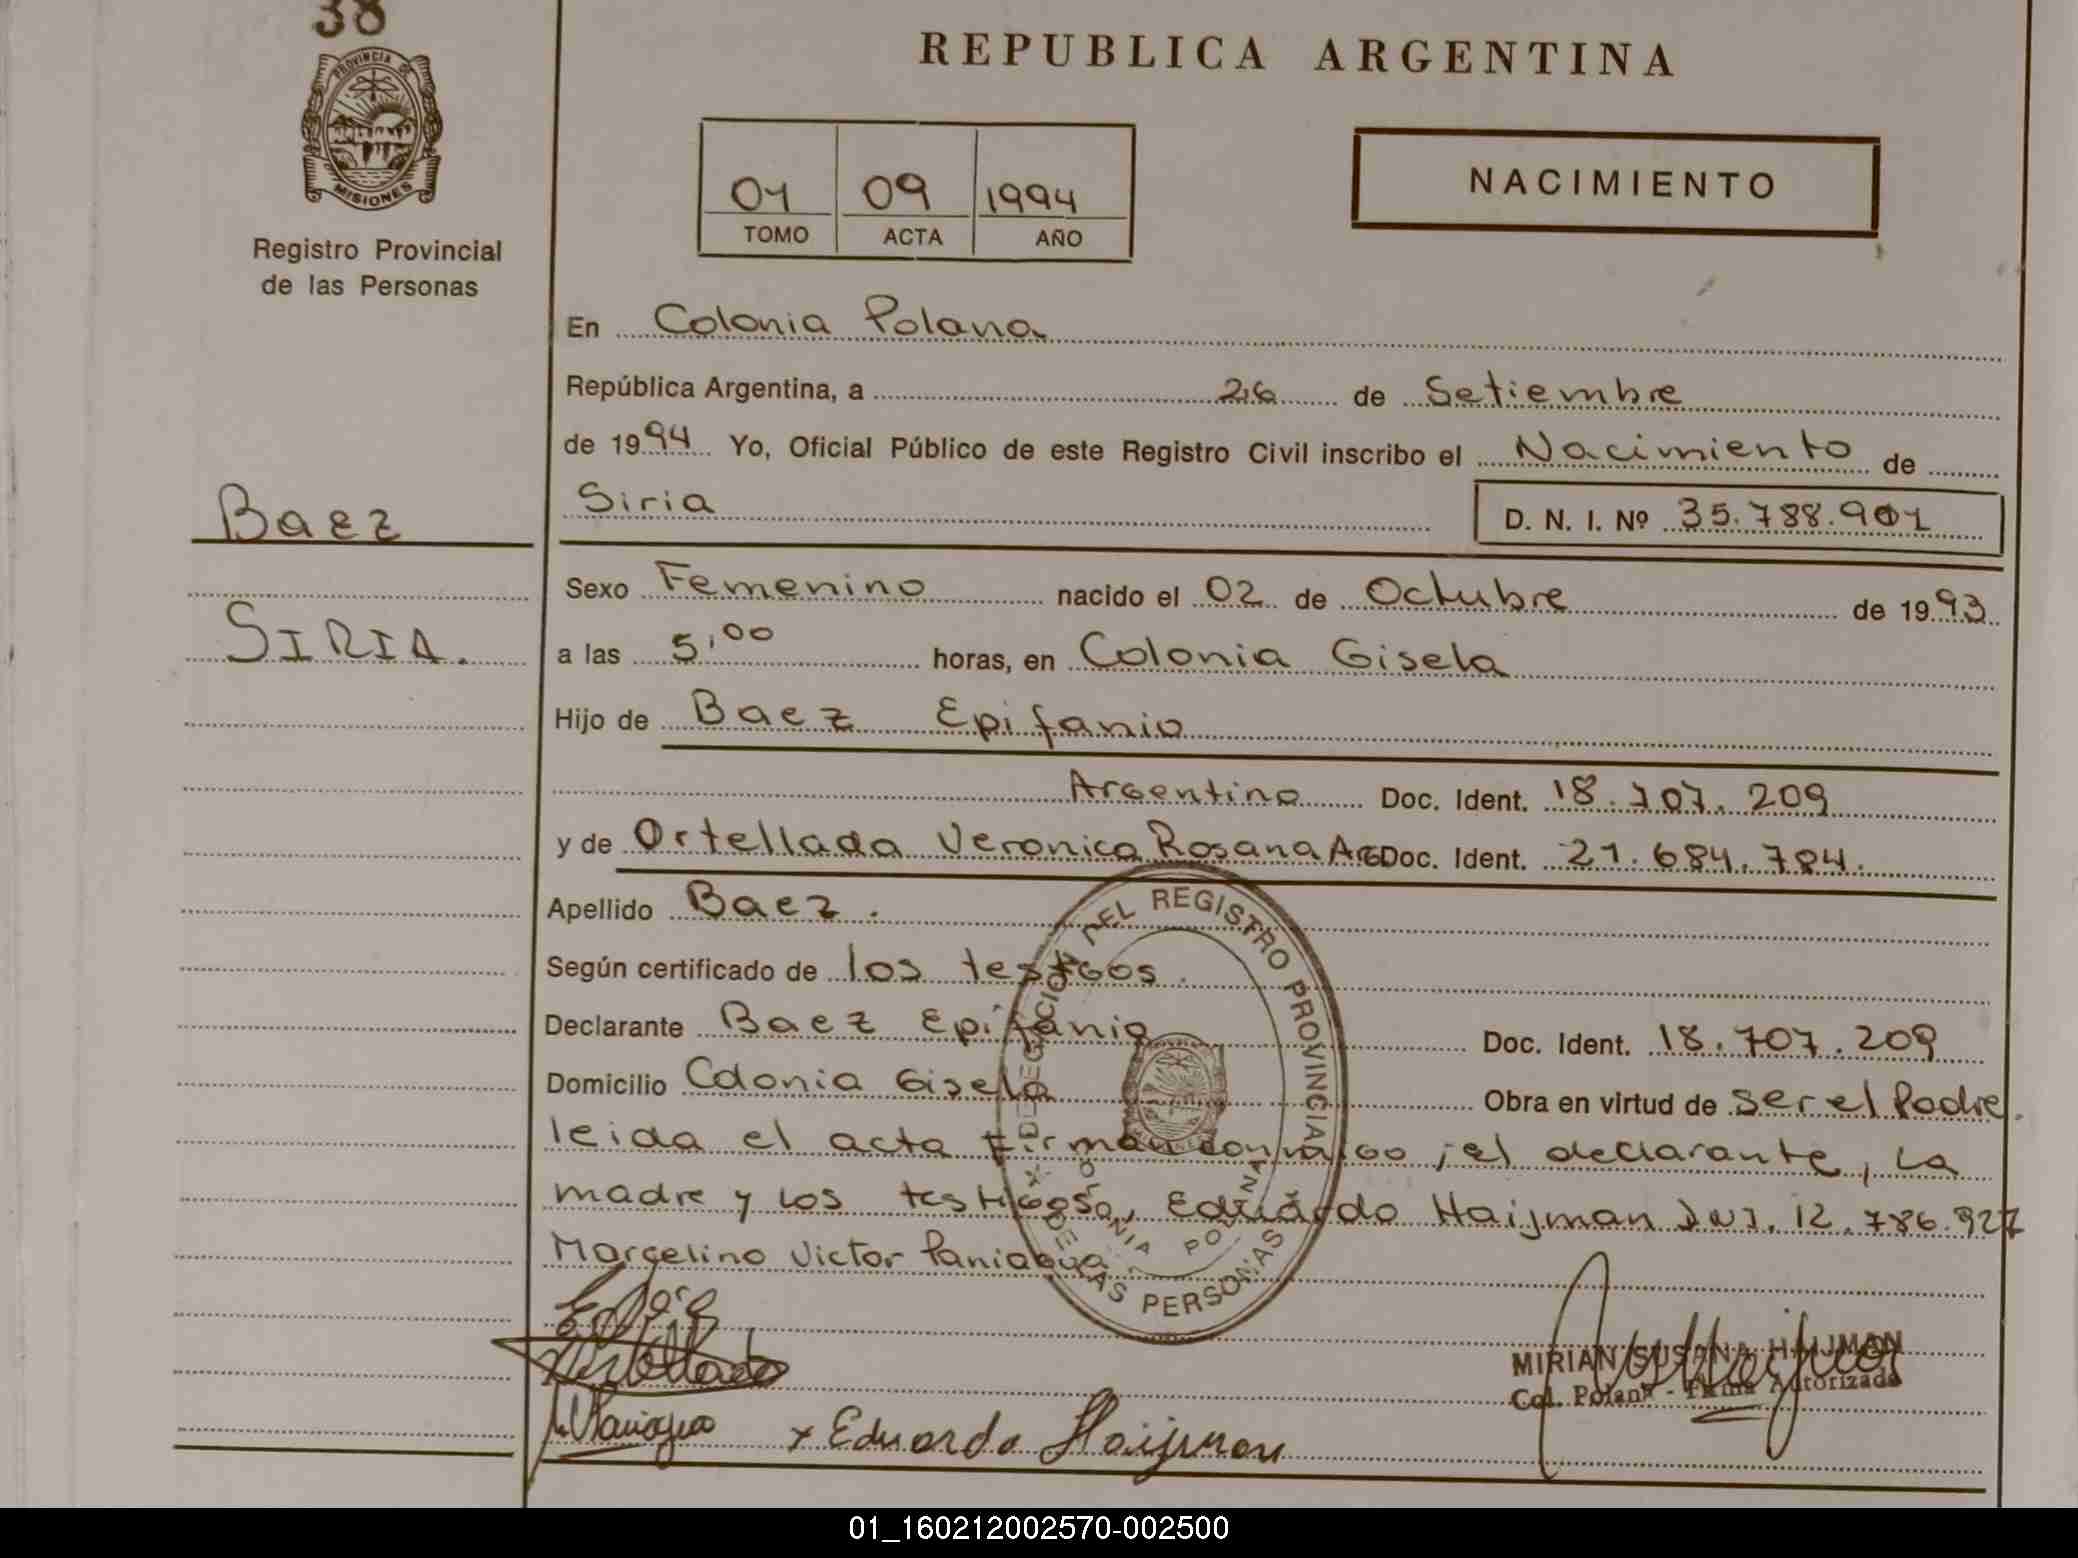 38
PROVINCIA DE
MISIONES
Registro Provincial
de las Personas
REPUBLICA ARGENTINA
01 09 1994
TOMO ACTA AÑO
NACIMIENTO
En Colonia Polana
República Argentina, a 26 de Setiembre
de 1994 Yo, Oficial Público de este Registro Civil inscribo el Nacimiento de
Baez
Siria D. N. I. Nº 35.788.901
Sexo Femenino nacido el 02 de Octubre de 1993
SIRIA.
a las 5,00 horas, en Colonia Gisela
Hijo de Baez Epifanio
Argentino Doc. Ident. 18.707.209
y de Ortellada Veronica Rosana ARG Doc. Ident. 21.684.784.
Apellido Baez.
Según certificado de los testigos.
Declarante Baez Epifanio Doc. Ident. 18.707.209
Domicilio Colonia Gisela Obra en virtud de ser el Padre.
leida el acta firman conmigo ; el declarante, La
madre y los testigos, Eduardo Haijman DNI. 12.786.927
Marcelino Victor Paniagua
DELEGACION DEL REGISTRO PROVINCIAL
DE LAS PERSONAS
COLONIA POLANA
MISIONES
MIRIAN SUSANA HAIJMAN
Col. Polana - Firma Autorizada
x Eduardo Haijman
01_160212002570-002500